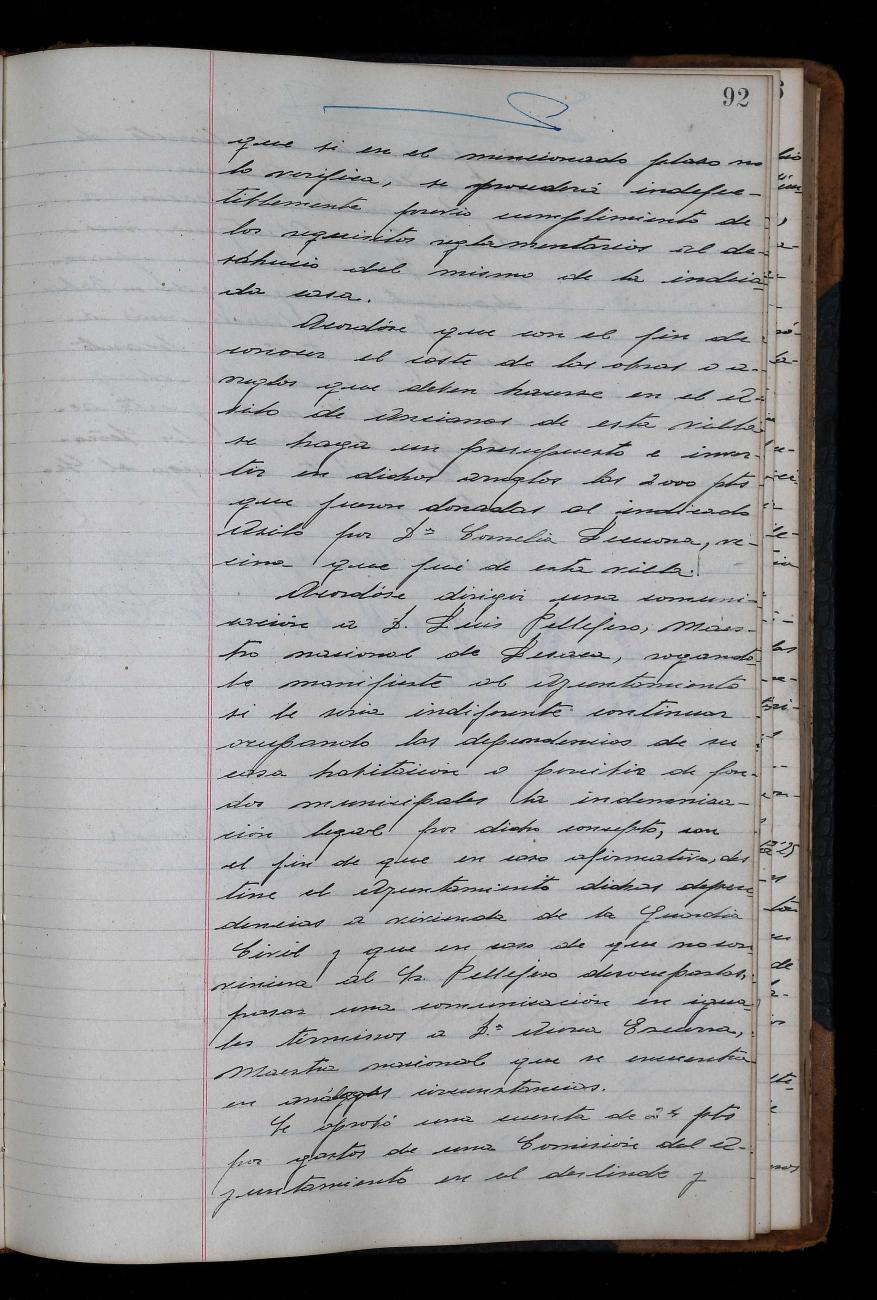 92
que si en el mencionado plazo no
lo verifica, se procederá indefec-
tiblemente previo cumplimiento de
los requisitos reglamentarios al de-
sahucio del mismo de la indica-
da casa.
Acordóse que con el fin de
conocer el coste de las obras o a-
rreglos que deben hacerse en el A-
silo de Ancianos de esta villa
se haga un presupuesto e inver-
tir en dichos arreglos las 2000 pts
que fueron donadas al indicado
Asilo por Dª Cornelia Lecuona, ve-
cina que fué de esta villa.
Acordóse dirigir una comuni-
cación a D. Luis Pellejero, Maes-
tro nacional de Lesaca, rogando
le manifieste al Ayuntamiento
si le sería indiferente continuar
ocupando las dependencias de su
casa habitación o percibir de fon-
dos municipales la indemniza-
ción legal por dicho concepto, con
el fin de que en caso afirmativo, des
tine el Ayuntamiento dichas depen-
dencias a vivienda de la Guardia
Civil y que en caso de que no con-
viniera al Sr. Pellejero desocuparlas,
pasar una comunicación en igua-
les términos a Dª Ezcurra,
Maestra nacional que se encuentra
en análogas circunstancias.
Se aprobó una cuenta de 24 pts
por gastos de una Comisión del A-
yuntamiento en el deslinde y